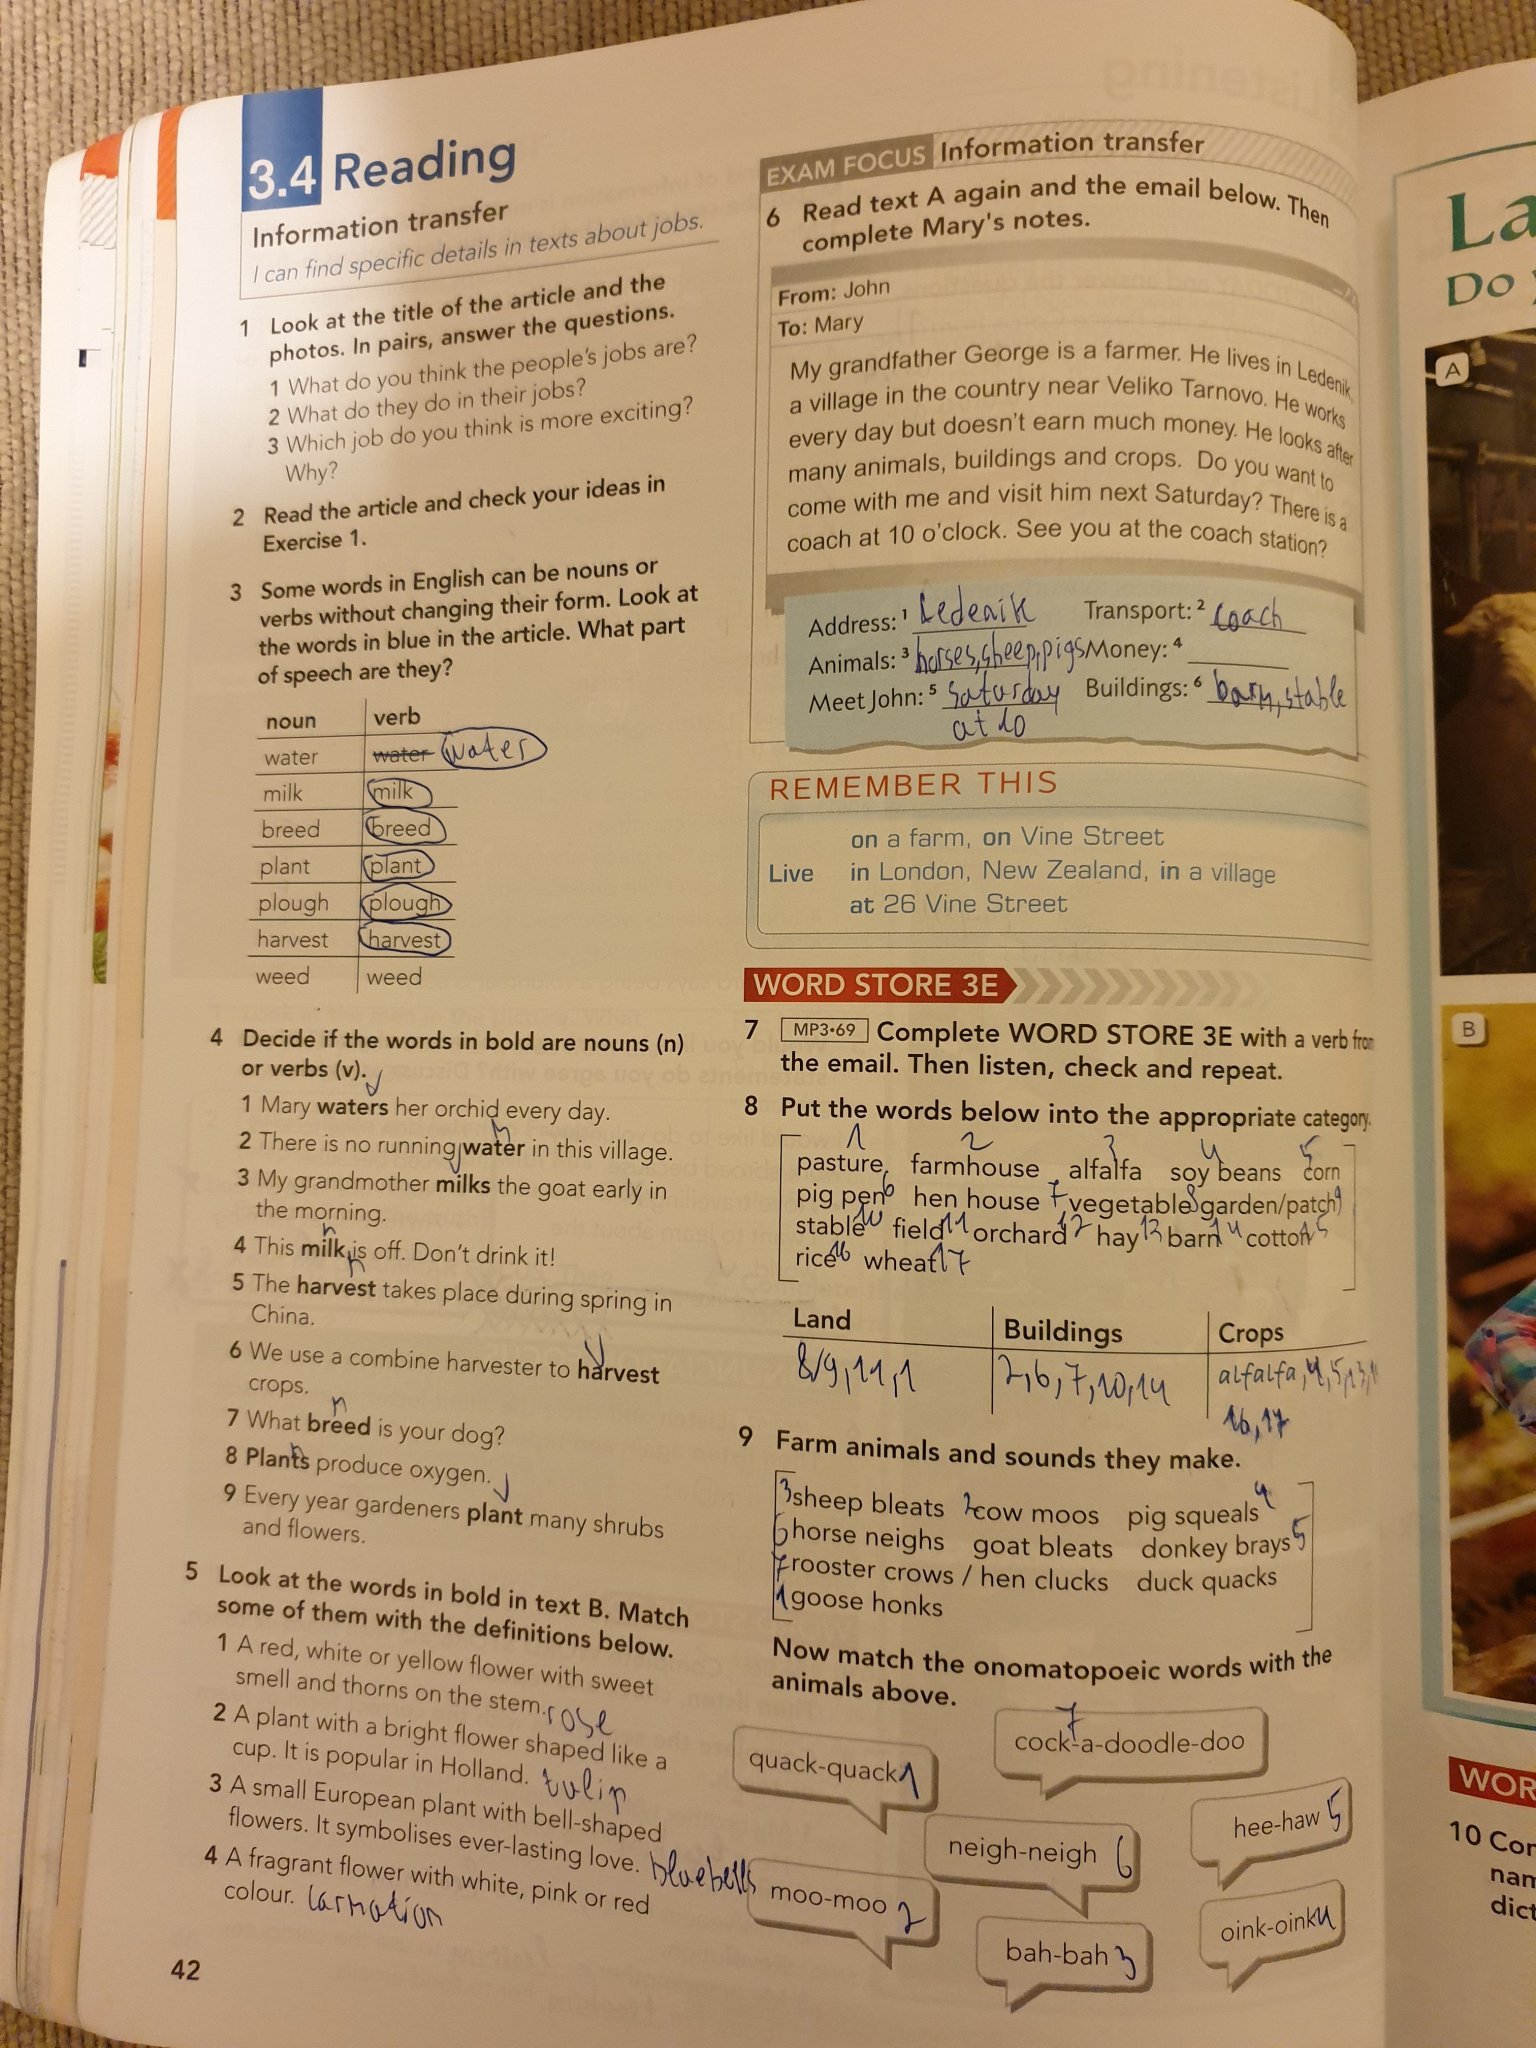 3.4 Reading
Information transfer
I can find specific details in texts about jobs.
1 Look at the title of the article and the
photos. In pairs, answer the questions.
1 What do you think the people's jobs are?
2 What do they do in their jobs?
3 Which job do you think is more exciting?
Why?
2 Read the article and check your ideas in
Exercise 1.
3 Some words in English can be nouns or
verbs without changing their form. Look at
the words in blue in the article. What part
of speech are they?
noun verb
water water water
milk milk
breed breed
plant plant
plough plough
harvest harvest
weed weed
4 Decide if the words in bold are nouns (n)
or verbs (v).
v
1 Mary waters her orchid every day.
n
2 There is no running water in this village.
v
3 My grandmother milks the goat early in
the morning.
n
4 This milk is off. Don't drink it!
n
5 The harvest takes place during spring in
China.
v
6 We use a combine harvester to harvest
crops.
n
7 What breed is your dog?
n
8 Plants produce oxygen.
v
9 Every year gardeners plant many shrubs
and flowers.
5 Look at the words in bold in text B. Match
some of them with the definitions below.
1 A red, white or yellow flower with sweet
smell and thorns on the stem. rose
2 A plant with a bright flower shaped like a
cup. It is popular in Holland. tulip
3 A small European plant with bell-shaped
flowers. It symbolises ever-lasting love. bluebells
4 A fragrant flower with white, pink or red
colour. carnation
42
EXAM FOCUS Information transfer
6 Read text A again and the email below. Then
complete Mary's notes.
From: John
To: Mary
My grandfather George is a farmer. He lives in Ledenik,
a village in the country near Veliko Tarnovo. He works
every day but doesn't earn much money. He looks after
many animals, buildings and crops. Do you want to
come with me and visit him next Saturday? There is a
coach at 10 o'clock. See you at the coach station?
Address: 1 Ledenik Transport: 2 coach
Animals: 3 horses, sheep, pigs Money: 4
Meet John: 5 Saturday Buildings: 6 barn, stable
at 10
REMEMBER THIS
on a farm, on Vine Street
Live in London, New Zealand, in a village
at 26 Vine Street
WORD STORE 3E
7 MP3•69 Complete WORD STORE 3E with a verb from
the email. Then listen, check and repeat.
8 Put the words below into the appropriate category.
1 2 3 4 5
pasture farmhouse alfalfa soy beans corn
pig pen 6 hen house 7 vegetable 8 garden/patch 9
stable 10 field 11 orchard 12 hay 13 barn 14 cotton 15
rice 16 wheat 17
Land Buildings Crops
8/9, 11, 1 2, 6, 7, 10, 14 alfalfa, 4, 5, 13,
16, 17
9 Farm animals and sounds they make.
3 sheep bleats 2 cow moos pig squeals 4
6 horse neighs goat bleats donkey brays 5
7 rooster crows / hen clucks duck quacks
1 goose honks
Now match the onomatopoeic words with the
animals above.
7
cock-a-doodle-doo
quack-quack 1
hee-haw 5
neigh-neigh 6
moo-moo 2
oink-oink 4
bah-bah 3
La
Do
A
B
WOR
10 Cor
nam
dict